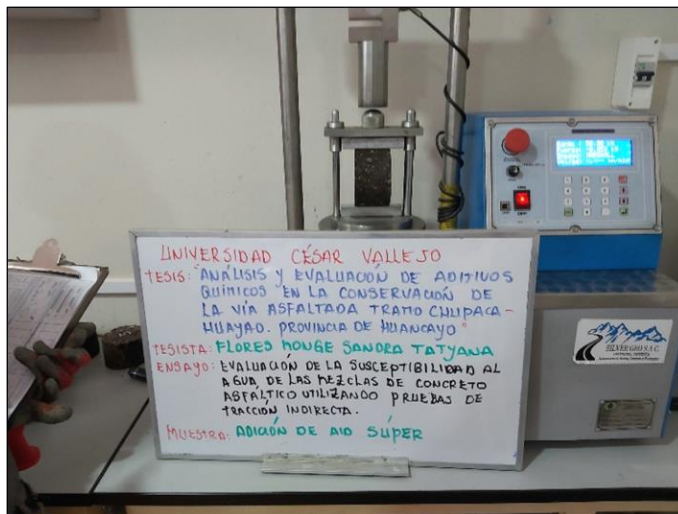 UNIVERSIDAD CÉSAR VALLEJO
TESIS: "ANÁLISIS Y EVALUACIÓN DE ADITIVOS
QUÍMICOS EN LA CONSERVACIÓN DE
LA VÍA ASFALTADA TRAMO CHUPACA -
HUAYAO. PROVINCIA DE HUANCAYO"
TESISTA: FLORES MONGE SANDRA TATYANA
ENSAYO: EVALUACIÓN DE LA SUSCEPTIBILIDAD AL
AGUA DE LAS MEZCLAS DE CONCRETO
ASFÁLTICO UTILIZANDO PRUEBAS DE
TRACCIÓN INDIRECTA.
MUESTRA: ADICIÓN DE AID SÚPER
SILVER GEO S.A.C.